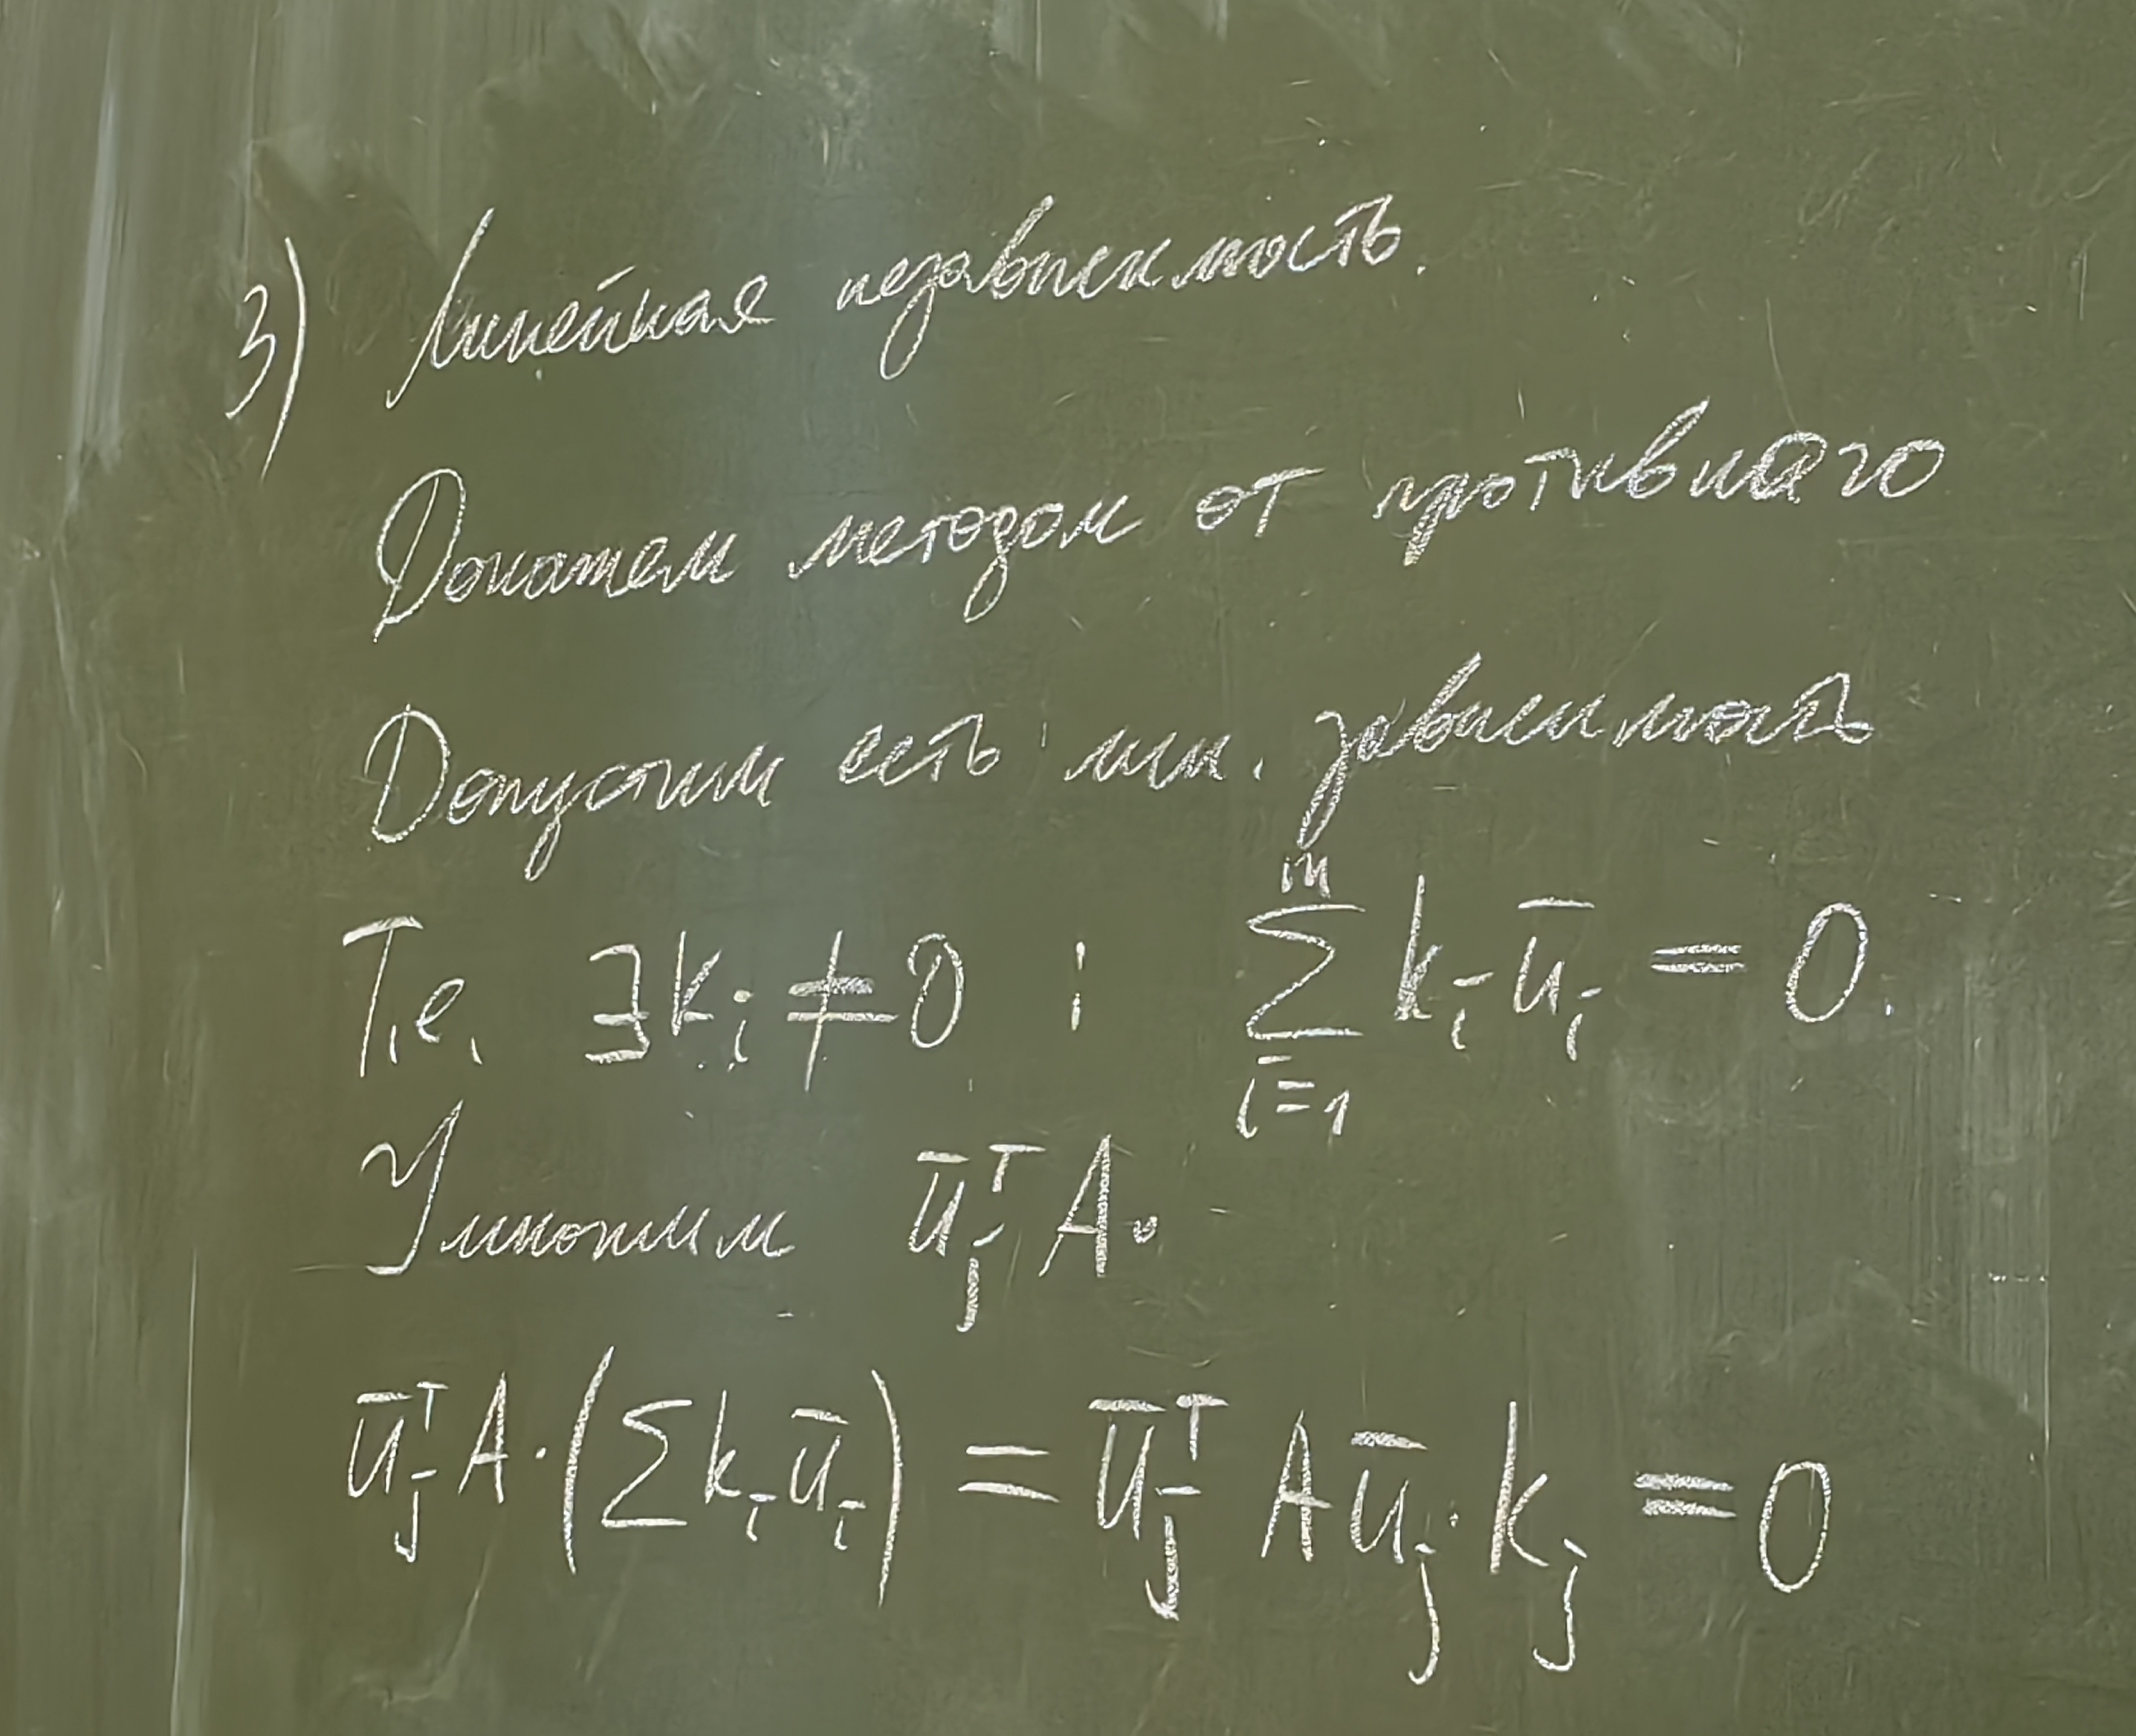 3) Линейная независимость.
Докажем методом от противного
Допустим есть лин. зависимость
Т.е. ∃ k_i ≠ 0 : \sum_{i=1}^{m} k_i \bar{u}_i = 0.
Умножим \bar{u}_j^T A ·
\bar{u}_j^T A · (\sum k_i \bar{u}_i) = \bar{u}_j^T A \bar{u}_j · k_j = 0